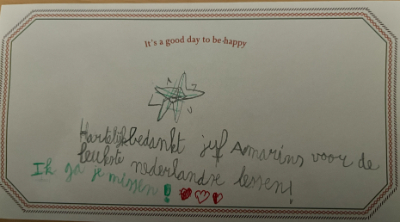 It's a good day to be happy
Hartelijk bedankt juf Amarins voor de
leukste nederlandse lessen!
Ik ga je missen!